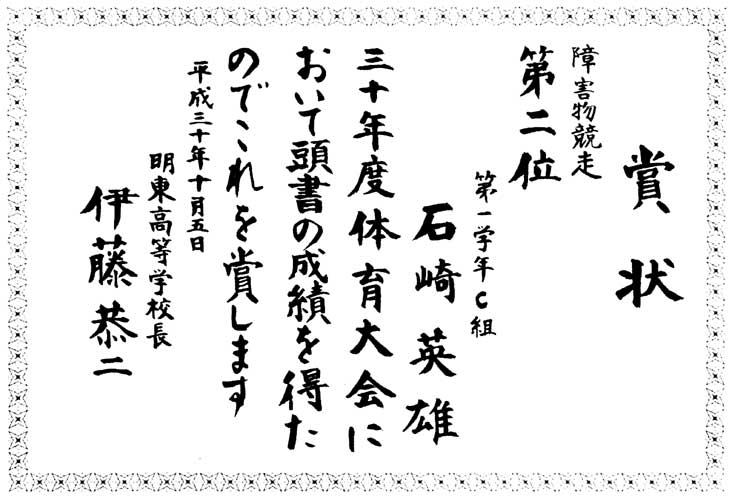 賞状
障害物競走
第二位
第一学年C組
石崎英雄
三十年度体育大会に
おいて頭書の成績を得た
のでこれを賞します
平成三十年十月五日
明東高等学校長
伊藤恭二